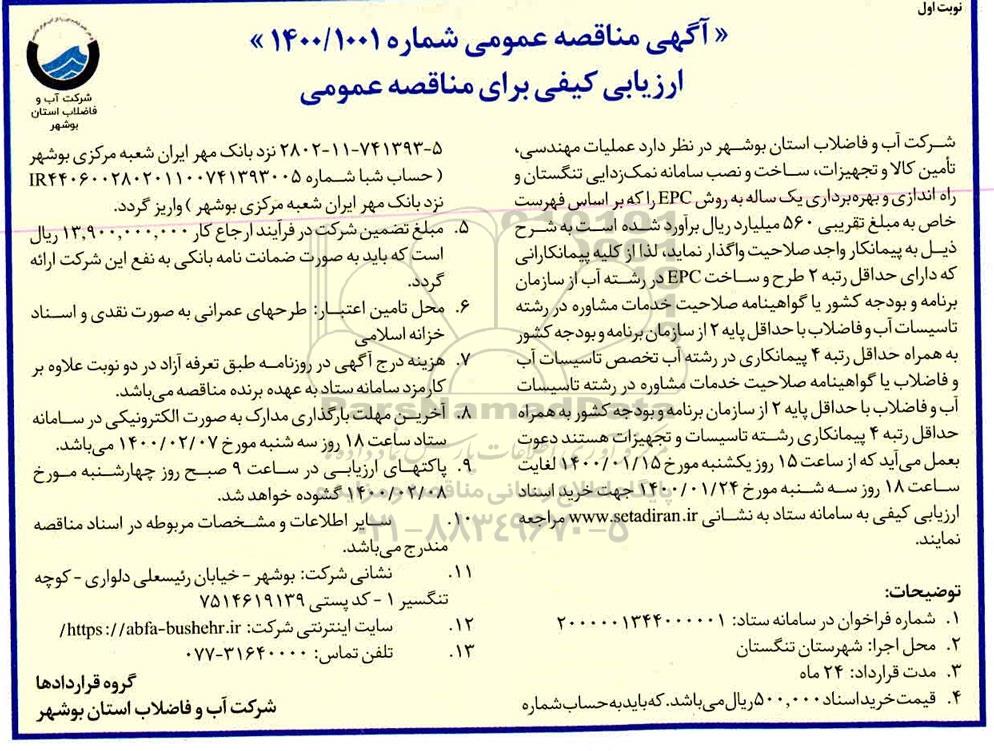 نوبت اول
« آگهی مناقصه عمومی شماره ۱۴۰۰/۱۰۰۱ »
ارزیابی کیفی برای مناقصه عمومی
شرکت آب و
فاضلاب استان
بوشهر
شرکت آب و فاضلاب استان بوشهر در نظر دارد عملیات مهندسی،
تأمین کالا و تجهیزات، ساخت و نصب سامانه نمک‌زدایی تنگستان و
راه اندازی و بهره‌برداری یک ساله به روش EPC را که بر اساس فهرست
خاص به مبلغ تقریبی ۵۶۰ میلیارد ریال برآورد شده است به شرح
ذیل به پیمانکار واجد صلاحیت واگذار نماید، لذا از کلیه پیمانکارانی
که دارای حداقل رتبه ۲ طرح و ساخت EPC در رشته آب از سازمان
برنامه و بودجه کشور یا گواهینامه صلاحیت خدمات مشاوره در رشته
تاسیسات آب و فاضلاب با حداقل پایه ۲ از سازمان برنامه و بودجه کشور
به همراه حداقل رتبه ۴ پیمانکاری در رشته آب تخصص تاسیسات آب
و فاضلاب یا گواهینامه صلاحیت خدمات مشاوره در رشته تاسیسات
آب و فاضلاب با حداقل پایه ۲ از سازمان برنامه و بودجه کشور به همراه
حداقل رتبه ۴ پیمانکاری رشته تاسیسات و تجهیزات هستند دعوت
بعمل می‌آید که از ساعت ۱۵ روز یکشنبه مورخ ۱۴۰۰/۰۱/۱۵ لغایت
ساعت ۱۸ روز سه شنبه مورخ ۱۴۰۰/۰۱/۲۴ جهت خرید اسناد
ارزیابی کیفی به سامانه ستاد به نشانی www.setadiran.ir مراجعه
نمایند.
توضیحات:
۱. شماره فراخوان در سامانه ستاد: ۲۰۰۰۰۰۱۳۴۴۰۰۰۰۰۱
۲. محل اجرا: شهرستان تنگستان
۳. مدت قرارداد: ۲۴ ماه
۴. قیمت خرید اسناد ۵۰۰,۰۰۰ ریال می‌باشد. که باید به حساب شماره
۲۸۰۲-۱۱-۷۴۱۳۹۳-۵ نزد بانک مهر ایران شعبه مرکزی بوشهر
( حساب شبا شماره IR۴۴۰۶۰۰۲۸۰۲۰۱۱۰۰۷۴۱۳۹۳۰۰۵
نزد بانک مهر ایران شعبه مرکزی بوشهر ) واریز گردد.
۵. مبلغ تضمین شرکت در فرآیند ارجاع کار ۱۳,۹۰۰,۰۰۰,۰۰۰ ریال
است که باید به صورت ضمانت نامه بانکی به نفع این شرکت ارائه
گردد.
۶. محل تامین اعتبار: طرحهای عمرانی به صورت نقدی و اسناد
خزانه اسلامی
۷. هزینه درج آگهی در روزنامه طبق تعرفه آزاد در دو نوبت علاوه بر
کارمزد سامانه ستاد به عهده برنده مناقصه می‌باشد.
۸. آخرین مهلت بارگذاری مدارک به صورت الکترونیکی در سامانه
ستاد ساعت ۱۸ روز سه شنبه مورخ ۱۴۰۰/۰۲/۰۷ می‌باشد.
۹. پاکتهای ارزیابی در ساعت ۹ صبح روز چهارشنبه مورخ
۱۴۰۰/۰۲/۰۸ گشوده خواهد شد.
۱۰. سایر اطلاعات و مشخصات مربوطه در اسناد مناقصه
مندرج می‌باشد.
۱۱. نشانی شرکت: بوشهر - خیابان رئیسعلی دلواری - کوچه
تنگسیر ۱ - کد پستی ۷۵۱۴۶۱۹۱۳۹
۱۲. سایت اینترنتی شرکت: https://abfa-bushehr.ir/
۱۳. تلفن تماس: ۰۷۷-۳۱۶۴۰۰۰۰
گروه قراردادها
شرکت آب و فاضلاب استان بوشهر
ParsNamadData
پایگاه اطلاع رسانی مناقصه و مزایده
۰۲۱-۸۸۳۴۹۶۷۰-۵